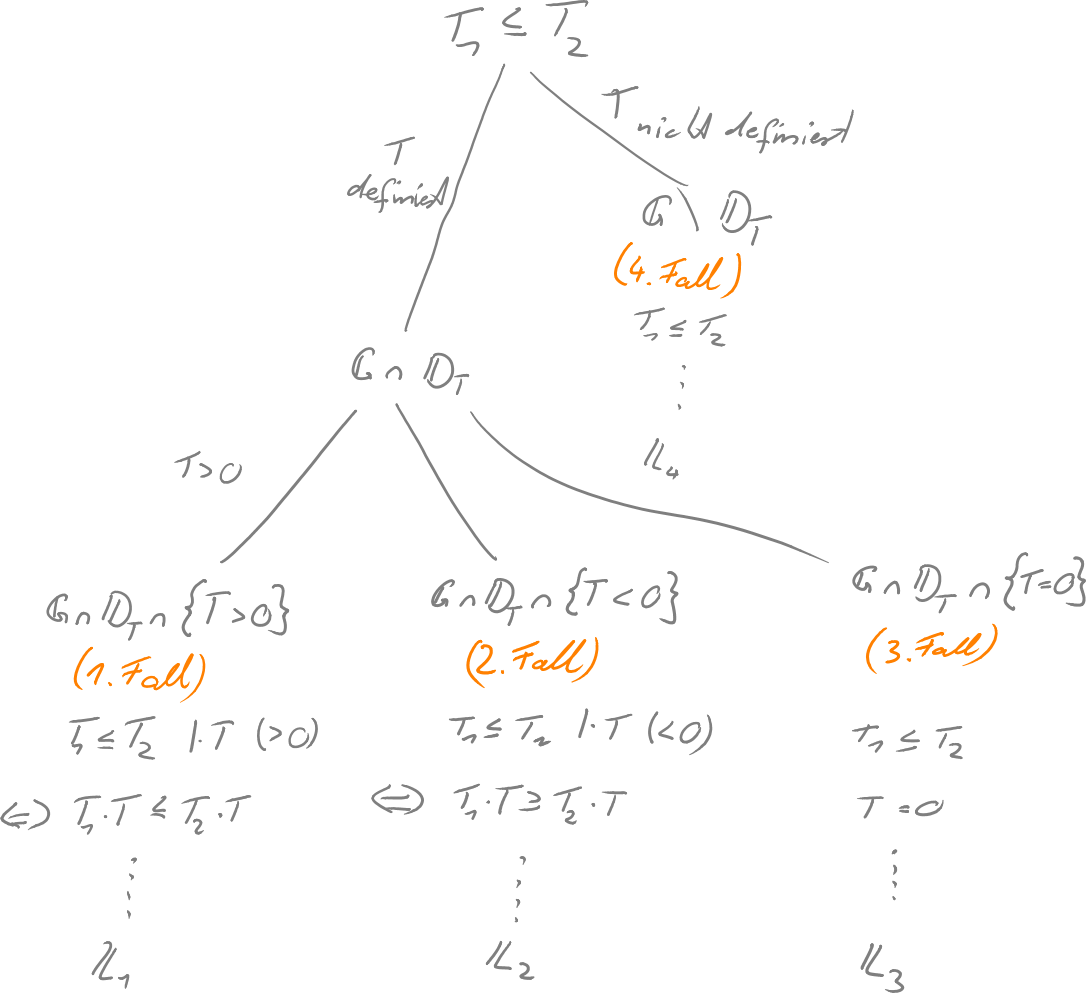 T₁ ≤ T₂
T nicht definiert
T
definiert
𝔾 \ 𝔻_T
(4. Fall)
T₁ ≤ T₂
⋮
𝕃₄
𝔾 ∩ 𝔻_T
T>0
𝔾 ∩ 𝔻_T ∩ {T>0}
(1. Fall)
T₁ ≤ T₂ |·T (>0)
⇔ T₁·T ≤ T₂·T
⋮
𝕃₁
𝔾 ∩ 𝔻_T ∩ {T<0}
(2. Fall)
T₁ ≤ T₂ |·T (<0)
⇔ T₁·T ≥ T₂·T
⋮
𝕃₂
𝔾 ∩ 𝔻_T ∩ {T=0}
(3. Fall)
T₁ ≤ T₂
T = 0
⋮
𝕃₃